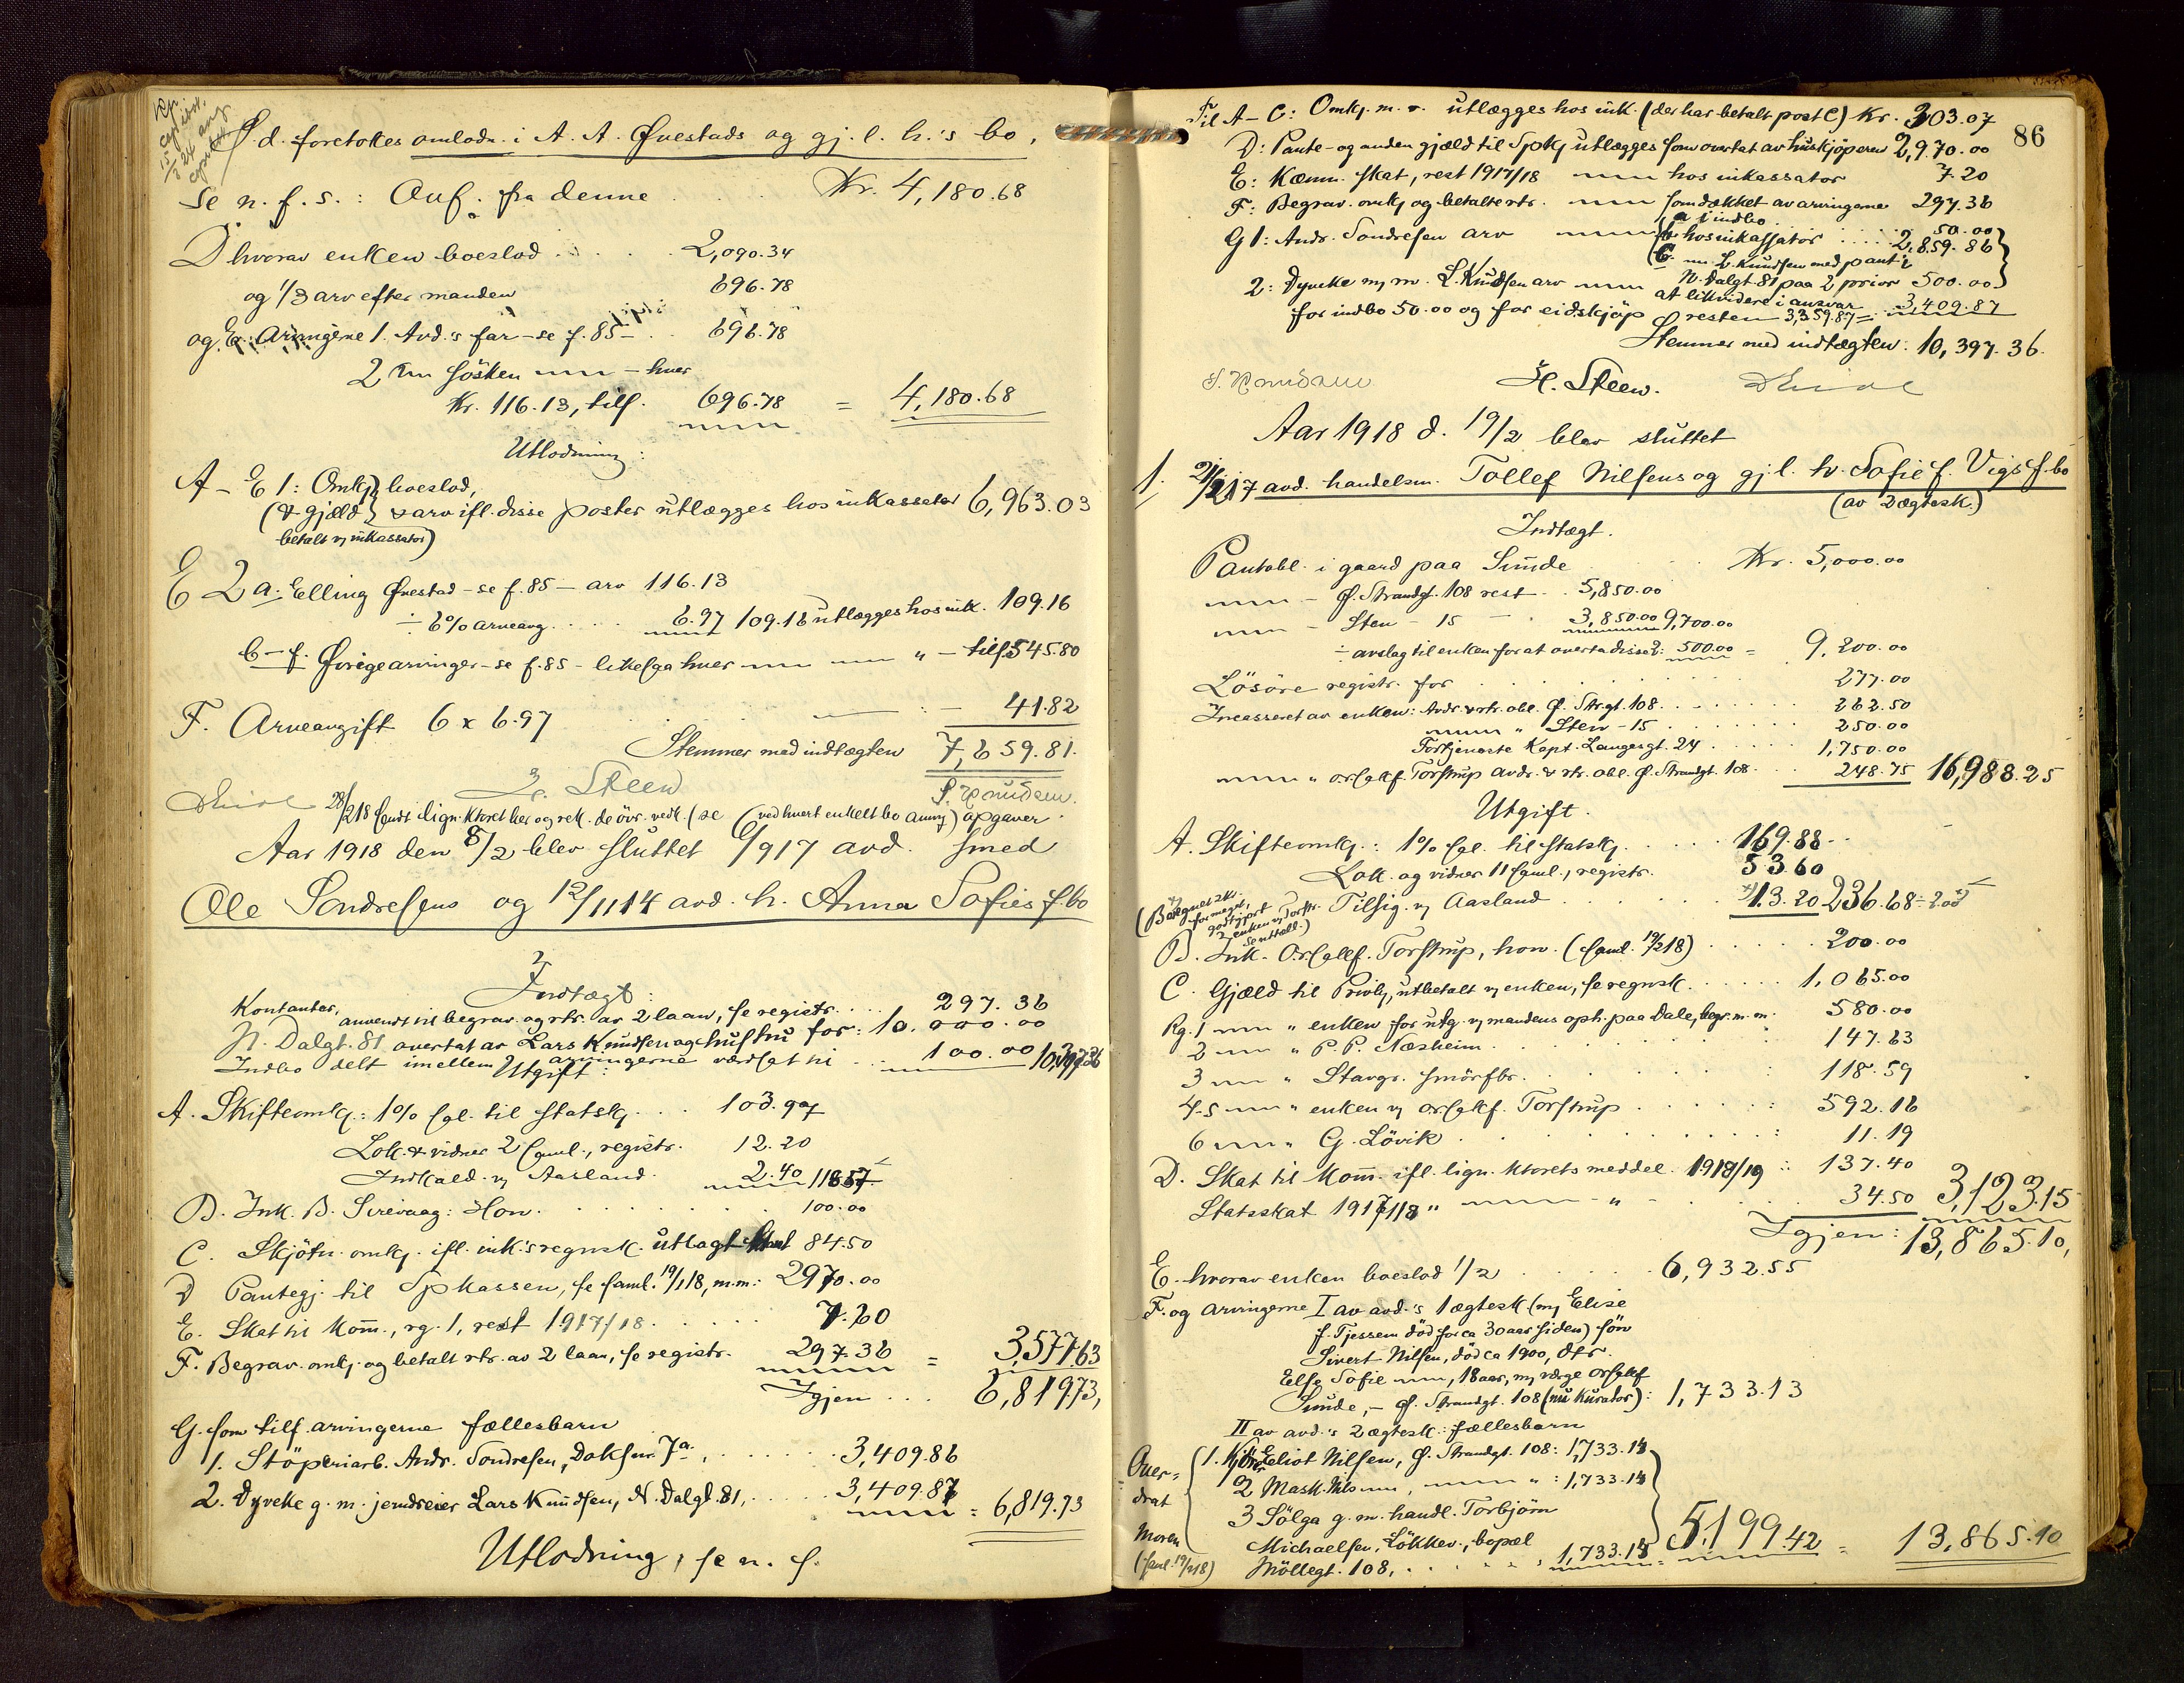 S.d. foretokes omlodn. i A. A. Øvestads og gj. l. h.'s bo,
Se n. f. s.: Overf. fra denne Kr. 4,180.68
D hvorav enken boeslod 2,090.34
og 1/3 arv efter manden 696.78
og E. Arvingene 1. Avd.s far - se f. 85 - 696.78
2 søsken - hver
Kr. 116.13, tils. 696.78 = 4,180.68
Utlodning:
A - E 1: Omkj. boeslod,
(& gjæld & arv ifl. disse poster utlægges hos inkassator 6,963.03
betalt v/ inkassator)
E 2 a. Elling Øvestad - se f. 85 - arv 116.13
÷ 6% arveavg. 6.97 109.16 utlægges hos ink. 109.16
b-f. Øvrige arvinger - se f. 85 - likesaa hver " - tils. 545.80
F. Arveavgift 6 x 6.97 41.82
Stemmer med indtægten 7,659.81.
28/2 18 sendt lign.ktoret her og rek. de övr. vedk. (se ved hvert enkelt bo anm.) opgaver.
Aar 1918 den 8/2 blev sluttet 6/917 avd. smed
Ole Sondresens og 12/11 14 avd. h. Anna Sofies f. bo
Indtægt:
Kontanter, anvendt til begrav. og rtr. av 2 laan, se registr. 297.36
N. Dalgt. 81 overtat av Lars Knudsen og hustru for: 10,000.00
Indbo delt imellem arvingerne værdsat til 100.00 10,397.36
Utgift:
A. Skifteomkj.: 1% sgl. til statskj. 103.97
Lok. & vidner 2 saml., registr. 12.20
Indkald. v/ Aasland 2.40 118.57
B. Ink. B. Sirevaag: Hon. 100.00
C. Skjötn. omkj. ifl. ink's regnsk. utlagt 84.50
D Pantegj. til Spkassen, se saml. 19/1 18, m.m.: 2970.00
E. Skat til Kom., rg. 1, rest 1917/18 7.20
F. Begrav. omkj. og betalt rtr. av 2 laan, se registr. 297.36 = 3,577.63
Igjen 6,819.73,
G. som tilf. arvingerne fællesbarn
1. Støperiarb. Andr. Sondresen, Doksgr. 7a, 3,409.86
2. Dyveke g. m. jerndreier Lars Knudsen, N. Dalgt. 81, 3,409.87 = 6,819.73
Utlodning, se n. s.
86
Til A - C: Omkj. m. v. utlægges hos ink. (der har betalt post C) Kr. 303.07
D: Pante- og anden gjæld til Spkj utlægges som overtat av huskjøperen 2,970.00
E: Kæmn. skat, rest 1917/18 hos inkassator 7.20
F: Begrav. omkj og betalte rtr. som dækket av arvingerne 297.36
G 1: Andr. Sondresen arv a i indbo 50.00
b hos inkassator 2,859.86
c. L. Knudsen med pant i
N. Dalgt. 81 paa 2 prior 500.00
2: Dyveke m/ m. L. Knudsen arv at likvidere i ansvar
for indbo 50.00 og for eidskjøp resten 3,359.87 = 3,409.87
Stemmer med indtægten: 10,397.36.
H. Steen.
Aar 1918 d. 19/2 blev sluttet
1. 21/2 17 avd. handelsm. Tollef Nilsens og gj. l. h. Sofie f. Vigs f. bo
(av 2 ægtesk.)
Indtægt.
Pantobl. i gaard paa Sunde Kr. 5,000.00
- Ø. Strandgt. 108 rest 5,850.00
- Sten - 15 3,850.00 9,700.00
÷ avslag til enken for at overta disse 2: 500.00 = 9,200.00
Løsøre registr. for 277.00
Incasseret av enken: Avdr. & rtr. obl. Ø. Strgt. 108. 262.50
" Sten - 15 250.00
Fortjeneste Kapt. Langesgt. 24 1,750.00
" orsgkf. Torstrup avdr. & rtr. obl. Ø. Strandgt. 108 248.75 16,988.25
Utgift.
A. Skifteomkj.: 1% sgl. til statskj. 169.88
Lok. og vidner 11 saml., registr. 53.60
Tilsig. v/ Aasland 13.20 236.68
B. Ink. Orsgkf. Torstrup, hon. (saml. 19/2 18) 200.00
C. Gjæld til Privbj, utbetalt v/ enken, se regnsk. 1,065.00
Rg. 1 " enken for utg. v/ mandens oph. paa Dale, begr. m. m. 580.00
2 " P. P. Næsheim 147.63
3 " Stavgr. smörfbr. 118.59
4-5 " enken v/ orsgkf. Torstrup 592.16
6 " G. Lövik 11.19
D. Skat til Kom. ifl. lign. ktorets meddel. 1918/19 : 137.40
Statsskat 1917/18 " " 34.50 3,123.15
Igjen: 13,865.10,
E. hvorav enken boeslod 1/2 6,932.55
F. og arvingerne I av avd.'s 1 ægtesk (m/ Elise
f. Tjessem död for ca 30 aar siden) sön
Sivert Nilsen, död ca 1900, dtr.
Else Sofie, 18 aar, m/ værge orsgkf
Sunde, - Ø. Strandgt. 108 (nu Kurator): 1,733.13
II av avd.'s 2 ægtesk.: fællesbarn
Over-
drat
Moren
(saml. 19/2 18)
1. Eliot Nilsen, Ø. Strandgt. 108: 1,733.14
2 Mask. Nils, " : 1,733.14
3 Sölga g. m. handl. Torbjörn
Michaelsen, Lökkev., bopæl
Möllegt. 108, 1,733.14 = 5,199.42 = 13,865.10